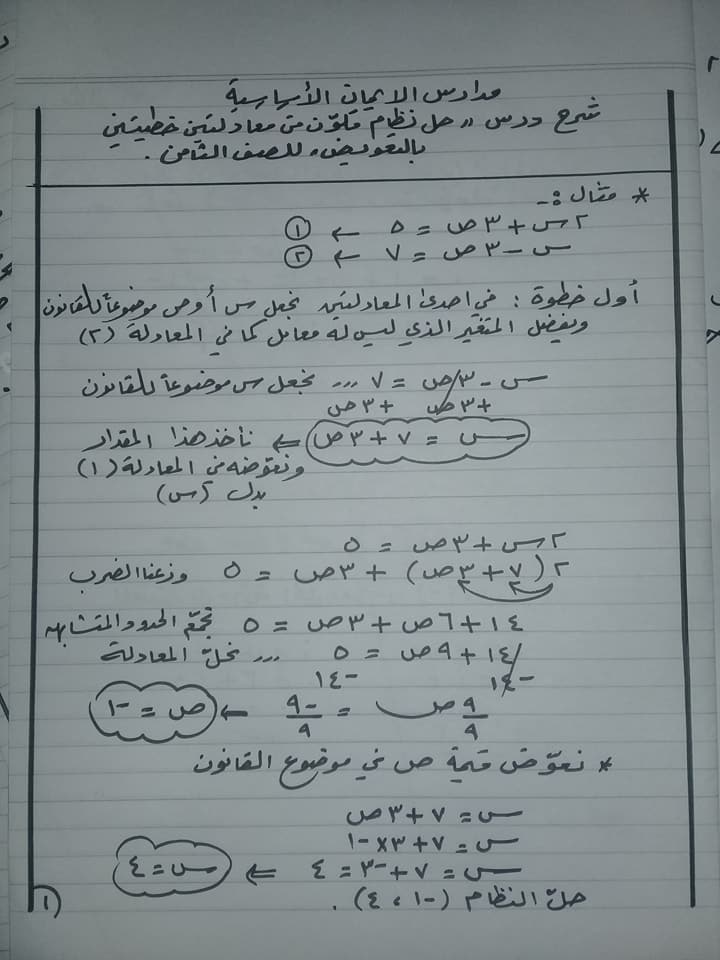 مدارس الايمان الأساسية
شرح درس " حل نظام مكوّن من معادلتين خطيتين
بالتعويض " للصف الثامن .
* مثال :-
٢س + ٣ص = ٥ ← ①
س - ٣ص = ٧ ← ②
أول خطوة : في احدى المعادلتين نجعل س أو ص موضوعاً للقانون
ويفضل المتغير الذي ليس له معامل كما في المعادلة (٢)
س - ٣ص = ٧ ... نجعل س موضوعاً للقانون
+ ٣ص + ٣ص
س = ٧ + ٣ص ⇐ نأخذ هذا المقدار
ونعوّضه في المعادلة (١)
بدل (س)
٢س + ٣ص = ٥
٢(٧ + ٣ص) + ٣ص = ٥ وزعنا الضرب
١٤ + ٦ص + ٣ص = ٥ نجمّع الحدود المتشابهه
١٤ + ٩ص = ٥ ... نحلّ المعادلة
-١٤ -١٤
٩ص/٩ = -٩/٩ ← ص = -١
* نعوّض قيمة ص في موضوع القانون
س = ٧ + ٣ص
س = ٧ + ٣×-١
س = ٧ + -٣ = ٤ ⇐ س = ٤
حلّ النظام (-١ ، ٤) .
١